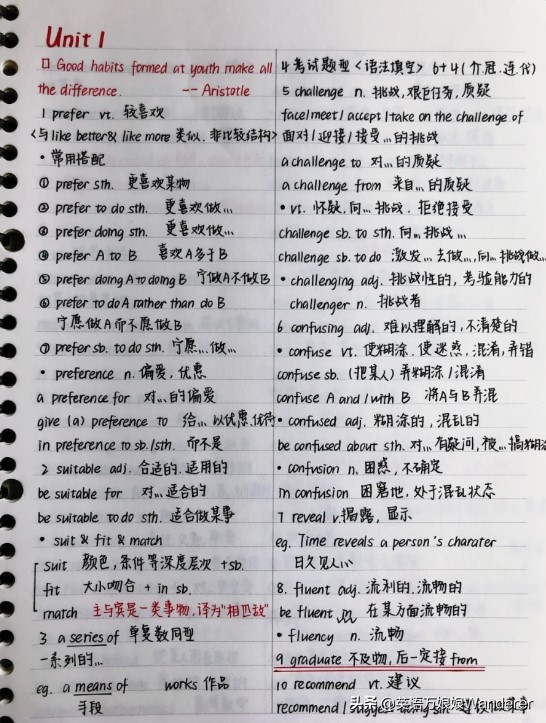 Unit 1
□ Good habits formed at youth make all
the difference. -- Aristotle
1 prefer vt. 较喜欢
<与like better& like more 类似. 非比较结构>
• 常用搭配
① prefer sth. 更喜欢某物
② prefer to do sth. 更喜欢做...
③ prefer doing sth. 更喜欢做...
④ prefer A to B 喜欢A多于B
⑤ prefer doing A to doing B 宁做A不做B
⑥ prefer to do A rather than do B
宁愿做A而不愿做B
⑦ prefer sb. to do sth. 宁愿...做...
• preference n. 偏爱, 优惠
a preference for 对...的偏爱
give (a) preference to 给... 以优惠.优待
in preference to sb./sth. 而不是
2 suitable adj. 合适的. 适用的
be suitable for 对...适合的
be suitable to do sth. 适合做某事
• suit & fit & match
suit 颜色, 条件等深度层次 +sb.
fit 大小吻合 + in sb.
match 主与宾是一类事物, 译为"相匹敌"
3 a series of 单复数同型
一系列的...
eg. a means of works 作品
手段
4 考试题型 <语法填空> 6+4(介.冠.连.代)
5 challenge n. 挑战, 艰巨任务, 质疑
face/meet/accept/take on the challenge of
面对/迎接/接受...的挑战
a challenge to 对...的质疑
a challenge from 来自...的质疑
• vt. 怀疑, 向...挑战. 拒绝接受
challenge sb. to sth. 向...挑战...
challenge sb. to do 激发...去做..., 向...挑战做...
• challenging adj. 挑战性的, 考验能力的
challenger n. 挑战者
6 confusing adj. 难以理解的, 不清楚的
• confuse vt. 使糊涂. 使迷惑, 混淆, 弄错
confuse sb. (把某人) 弄糊涂/混淆
confuse A and / with B 将A与B弄混
• confused adj. 糊涂的, 混乱的
be confused about sth. 对...有疑问, 被...搞糊涂
• confusion n. 困惑, 不确定
in confusion 困窘地, 处于混乱状态
7 reveal v. 揭露, 显示
eg. Time reveals a person's charater
日久见人心
8. fluent adj. 流利的. 流畅的
be fluent in 在某方面流畅的
• fluency n. 流畅
9 graduate 不及物, 后一定接from
10 recommend vt. 建议
recommend / suggest doing sth.
头条 @英语万娘娘Wanderer